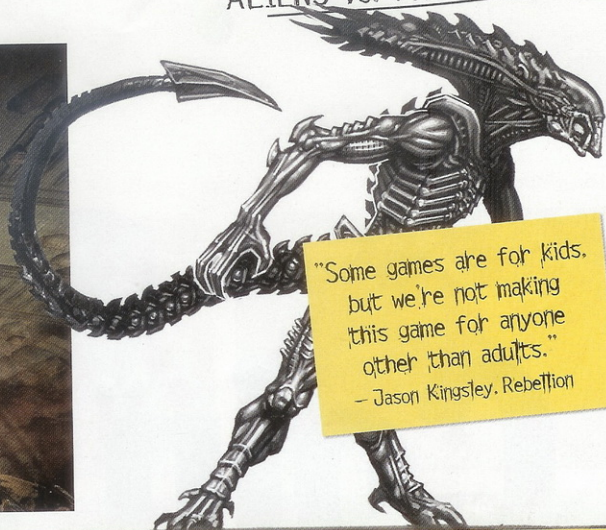 ALIENS VS.
"Some games are for kids,
but we're not making
this game for anyone
other than adults."
– Jason Kingsley, Rebellion